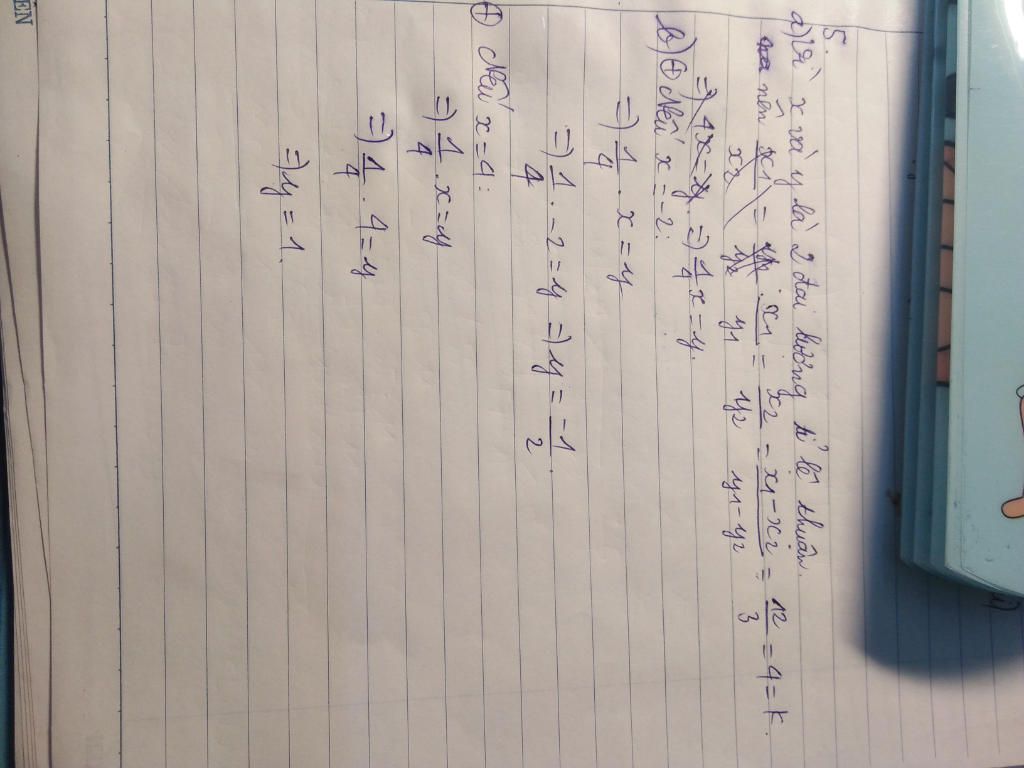 5.
a) Vì x và y là 2 đại lượng tỉ lệ thuận.
nên x1/y1 = x2/y2 = x1-x2/y1-y2 = 12/3 = 4 = k.
=) 1/4 x = y.
b) ⊕ Nếu x = -2:
=) 1/4 . x = y
=) 1/4 . -2 = y =) y = -1/2.
⊕ Nếu x = 4:
=) 1/4 . x = y
=) 1/4 . 4 = y
=) y = 1.